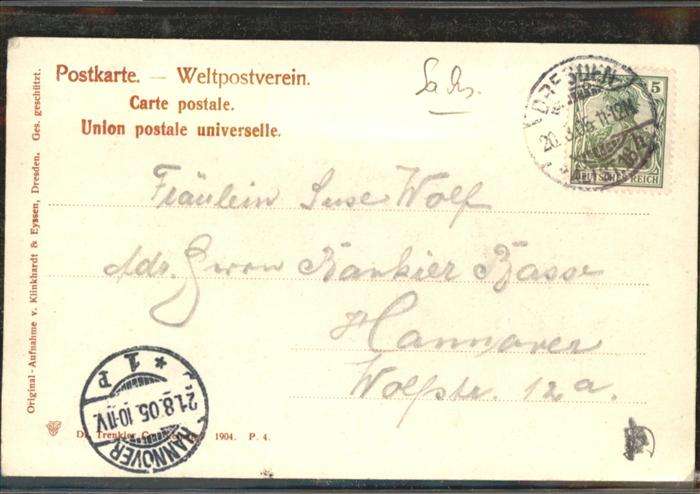 Postkarte. — Weltpostverein.
Carte postale.
Union postale universelle.
DRESDEN
20.8.05. 11-12N.
5
DEUTSCHES REICH
Fräulein Suse Wolf
Adr. Bankier Basse
Hannover
Wolfstr. 12a.
Original-Aufnahme v. Klinkhardt & Eyssen, Dresden. Ges. geschützt.
HANNOVER
* 1 P
21.8.05. 10-11V.
Dr. Trenkler 1904. P. 4.